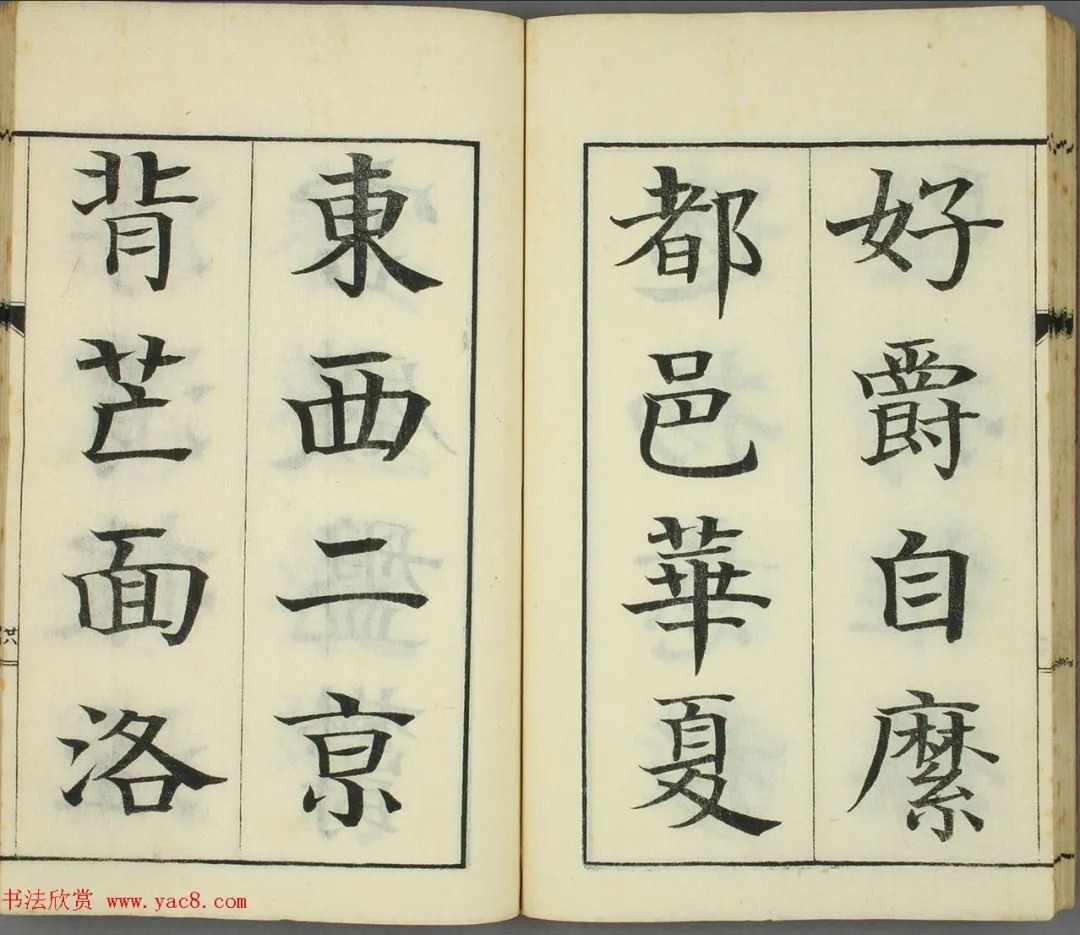 好爵自縻
都邑華夏
東西二亰
背芒面洛
廿
书法欣赏 www.yac8.com